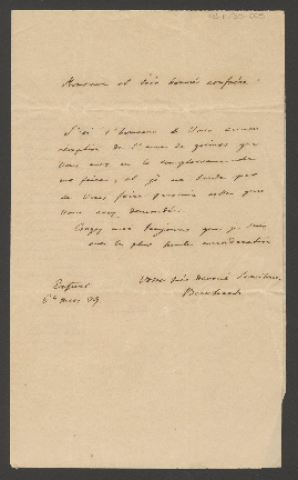 Monsieur et très honoré confrère.
J'ai l'honneur de vous
réception de l'envoi de graines que
vous avez eu la complaisance de
me faire, et je ne tarde pas
de vous faire parvenir celles que
vous avez demandées.
que je suis
avec la plus haute considération
votre très dévoué Serviteur
Bernhardi
Erfurt
6 mars 39